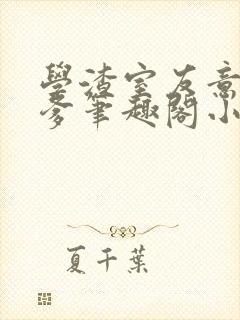 學渣室友意
爹筆趣閣小
夏千葉